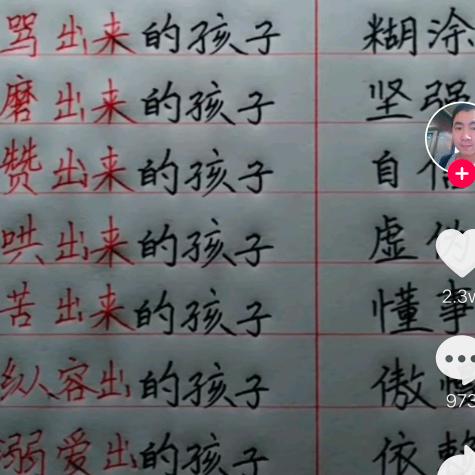 骂出来的孩子 糊涂
磨出来的孩子 坚强
赞出来的孩子 自信
哄出来的孩子 虚伪
2.3w
苦出来的孩子 懂事
纵容出的孩子 傲慢
973
溺爱出的孩子 依赖